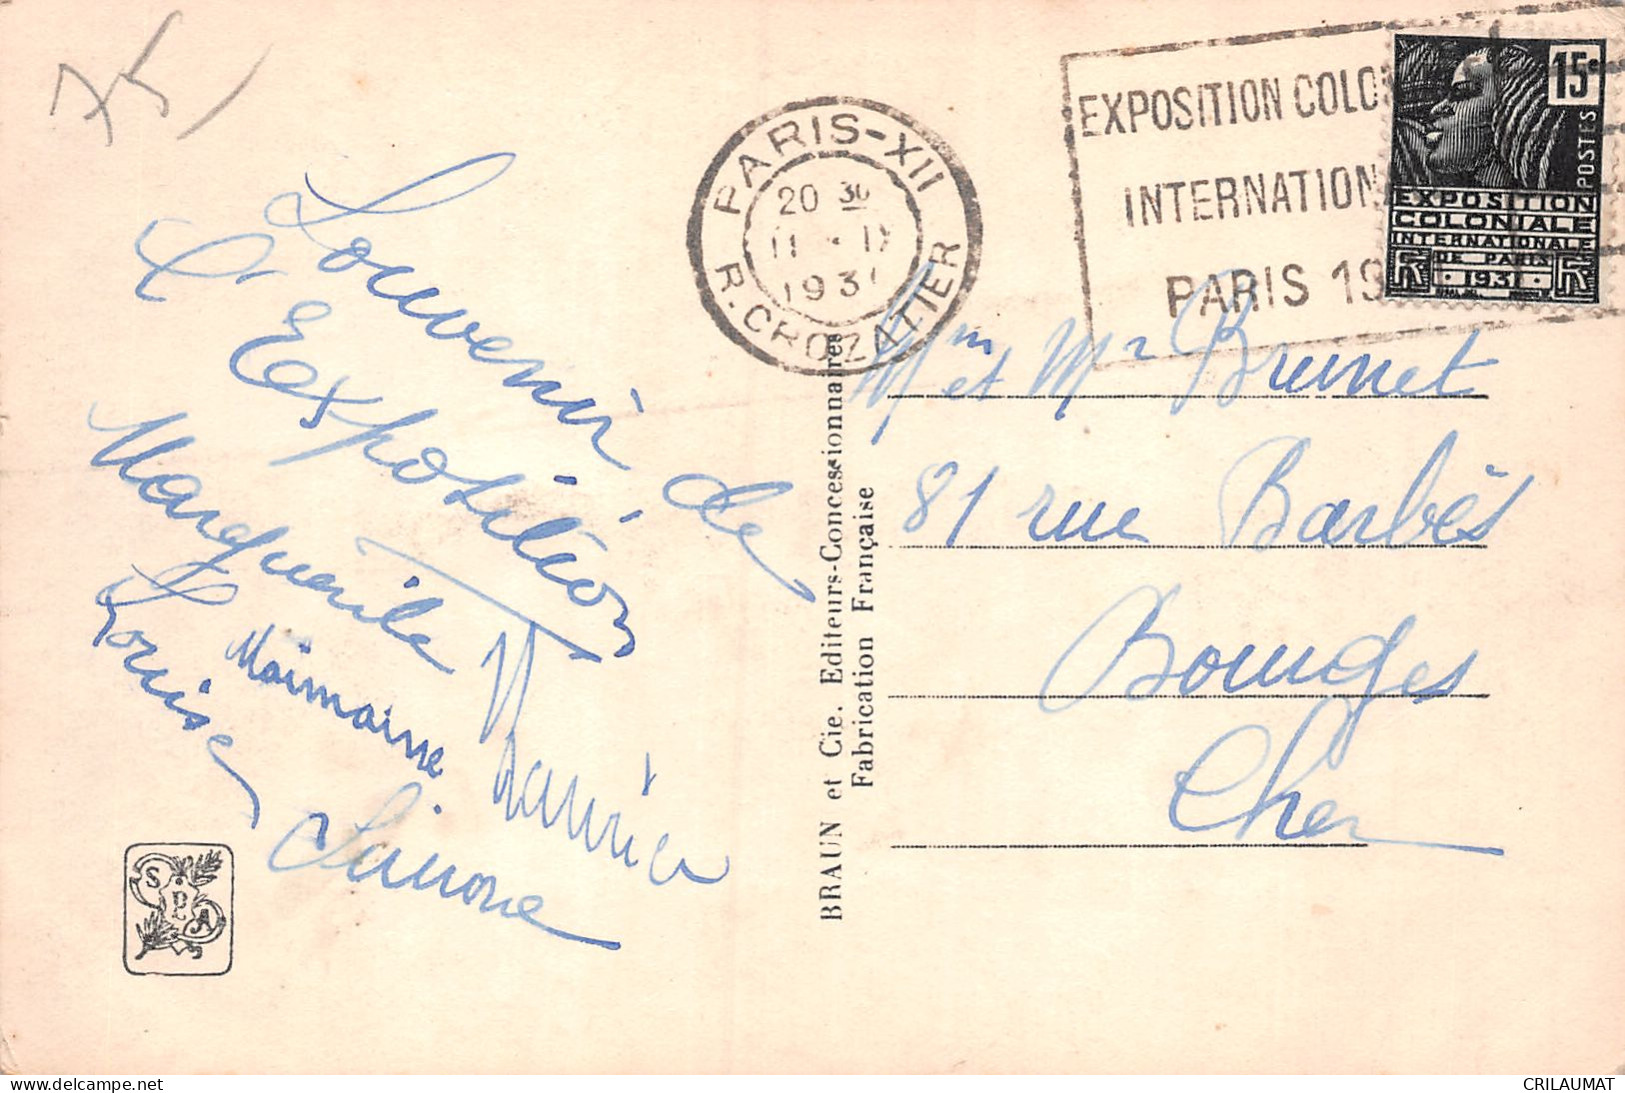 75
Souvenir de
L'Exposition
Marguerite
Louise
Maurice
Simone
S.P.A
BRAUN et Cie, Editeurs-Concessionnaires
Fabrication Française
PARIS-XII
20 30
11 - IX
1931
R. CROZATIER
EXPOSITION COLO
INTERNATION
PARIS 19
15c
POSTES
EXPOSITION
COLONIALE
INTERNATIONALE
DE PARIS
· 1931 ·
RF RF
Mm et Mr Brunet
81 rue Barbès
Bourges
Cher
delcampe.net
CRILAUMAT